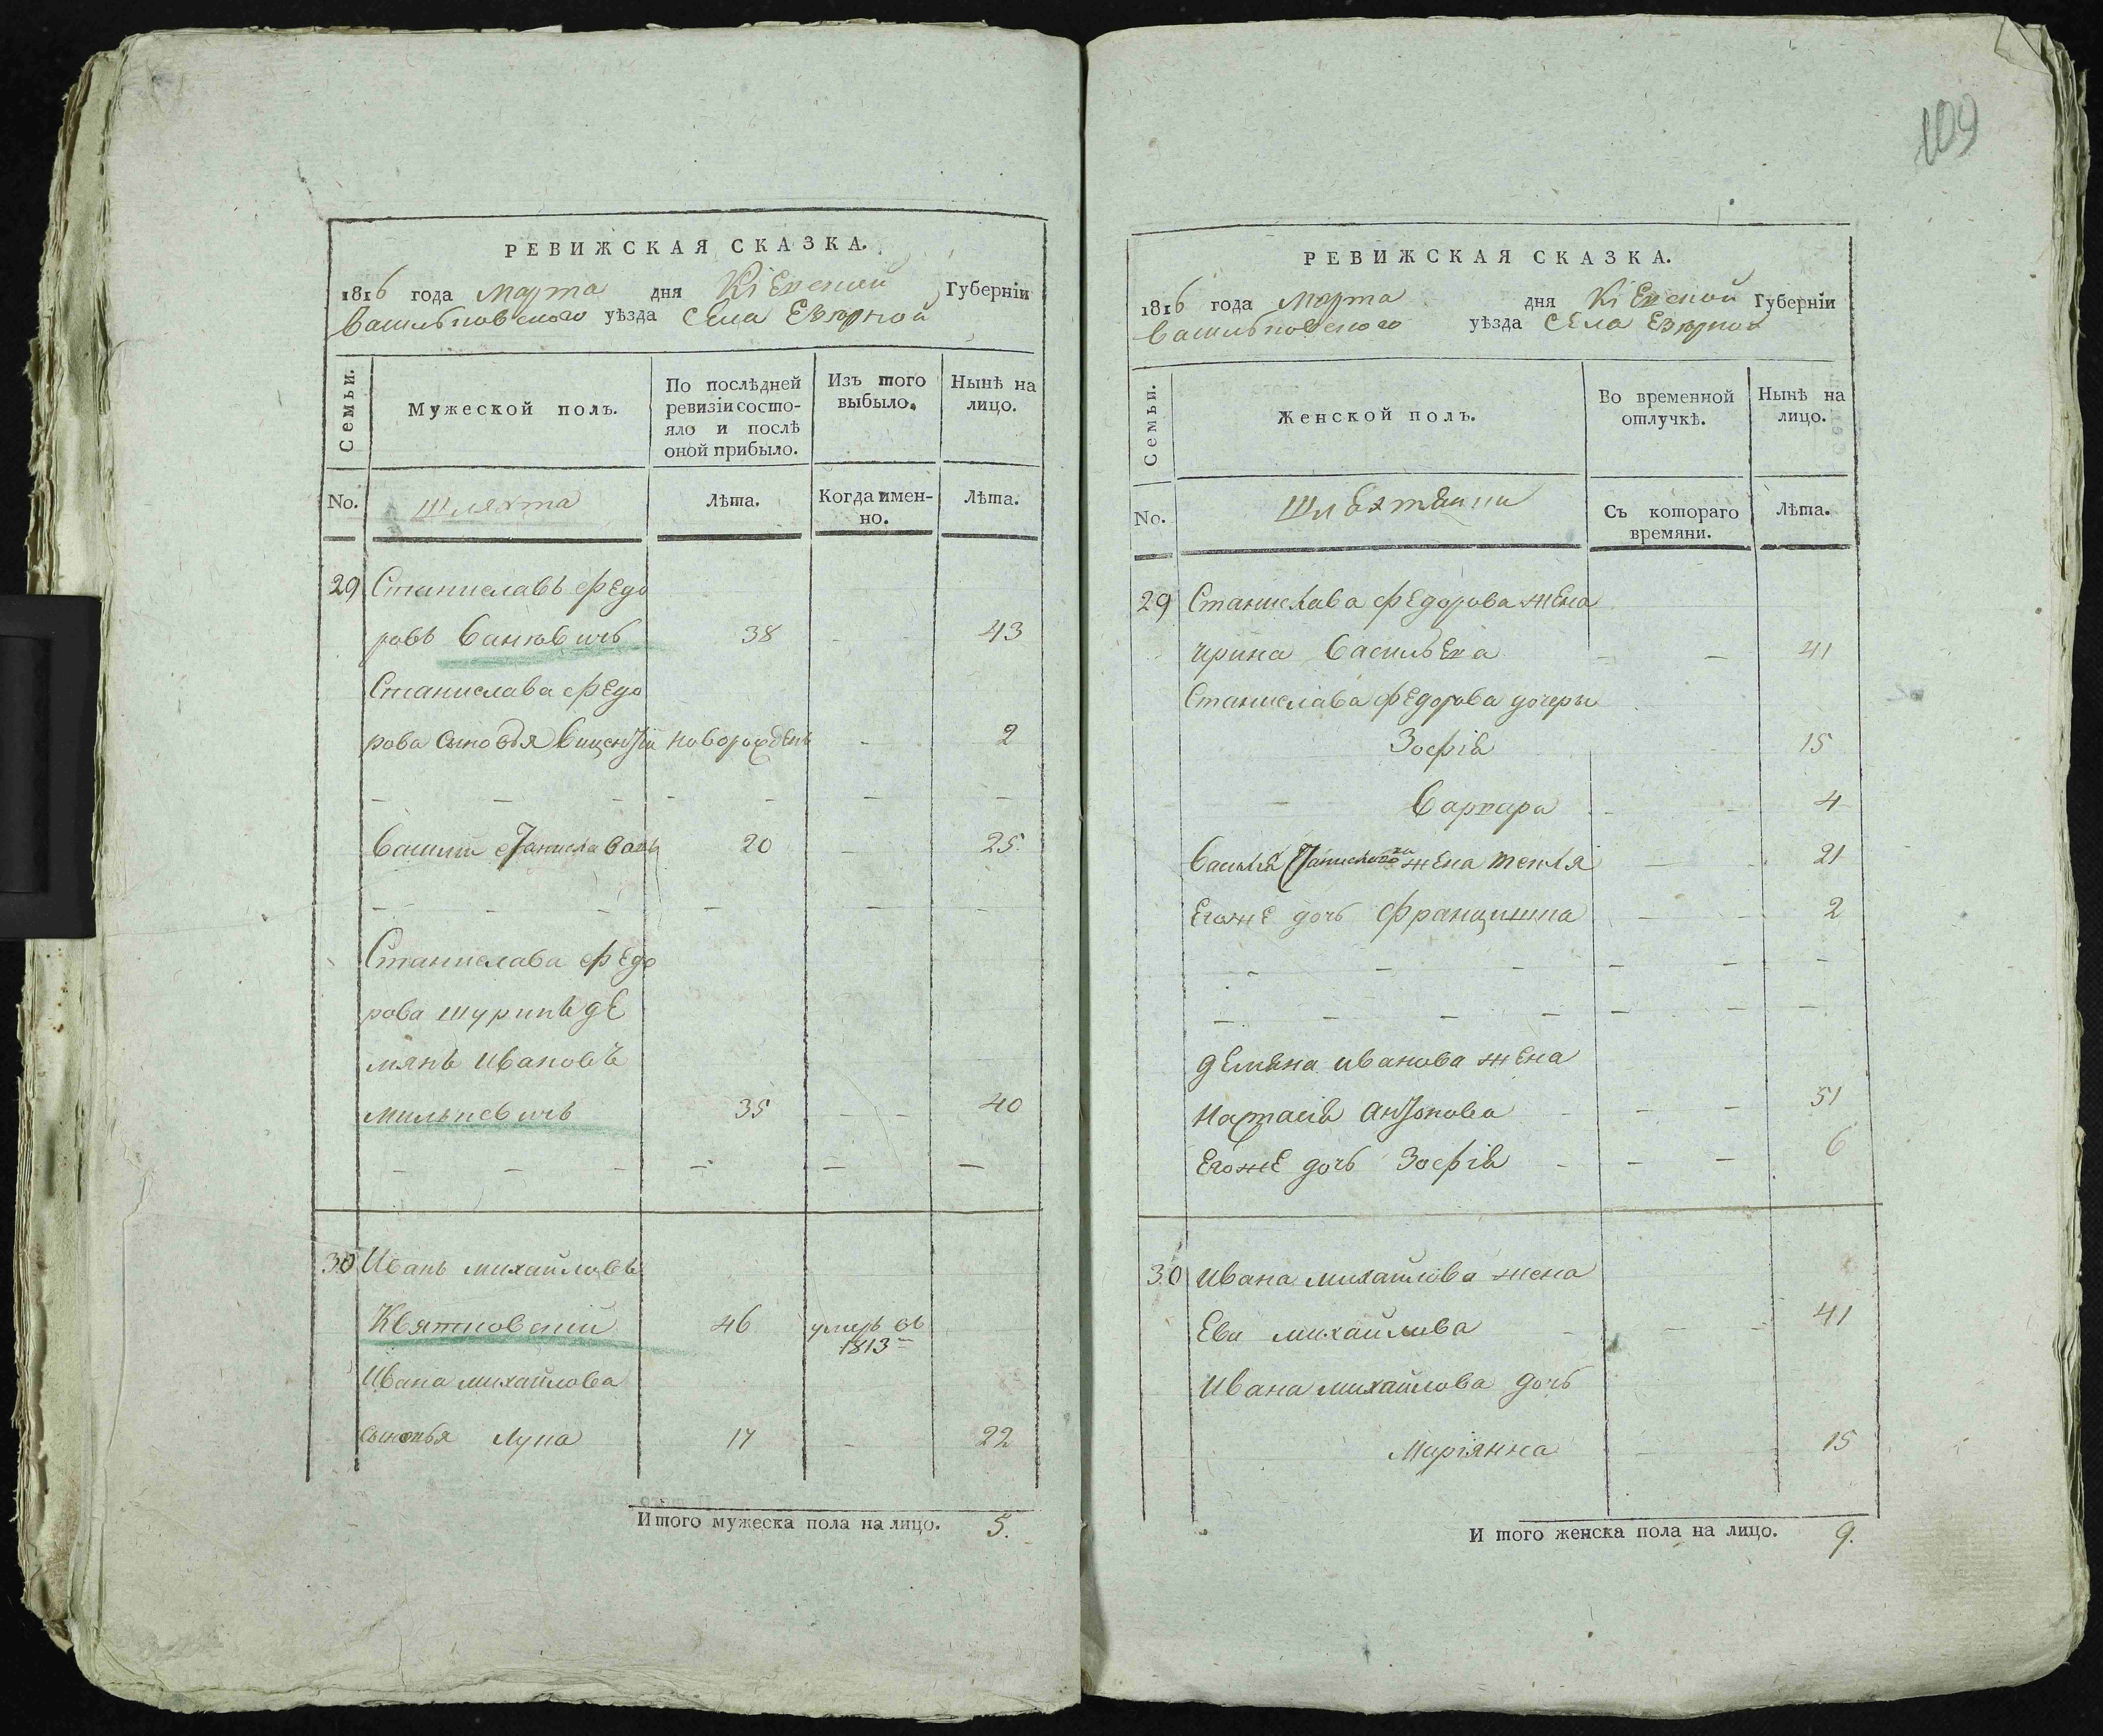 109
РЕВИЖСКАЯ СКАЗКА.
1816 года марта дня Кіевской Губерніи
Васильковского уѣзда села Езѣрной
Семьи.
Мужеской полъ.
По послѣдней ревизіи состояло и послѣ оной прибыло.
Изъ того выбыло.
Нынѣ на лицо.
No. шляхта Лѣта. Когда именно. Лѣта.
29 Станиславъ Федо
ровъ Ваньковичъ 38 - 43
Станислава Федо
рова сыновья Виценътій новорожденъ - 2
Василий Станиславовъ 20 - 25
Станислава Федо
рова шуринъ де
мянъ Ивановъ
милькевичъ 35 - - 40
30 Иванъ михайловъ
Квятковский 46 умеръ въ 1813
Ивана михайлова
сыновья Лука 17 - 22
Итого мужеска пола на лицо. 5.
РЕВИЖСКАЯ СКАЗКА.
1816 года марта дня Кіевской Губерніи
Васильковского уѣзда села Езѣрной
Семьи.
Женской полъ.
Во временной отлучкѣ.
Нынѣ на лицо.
No. Съ котораго времяни. Лѣта.
29 Станислава Федорова жена
ирина Васильева - - 41
Станислава Федорова дочери
Зофія - 15
Варвара - - 4
Василия Станиславова жена текля - - 21
Егоже дочь Францишка - - 2
демяна иванова жена
Настасія Антонова - - - 51
Егоже дочь Зофія - - - 6
30 Ивана михайлова жена
Ева михайлова - - - 41
Ивана михайлова дочь
Маріянна - - 15
И того женска пола на лицо. 9.